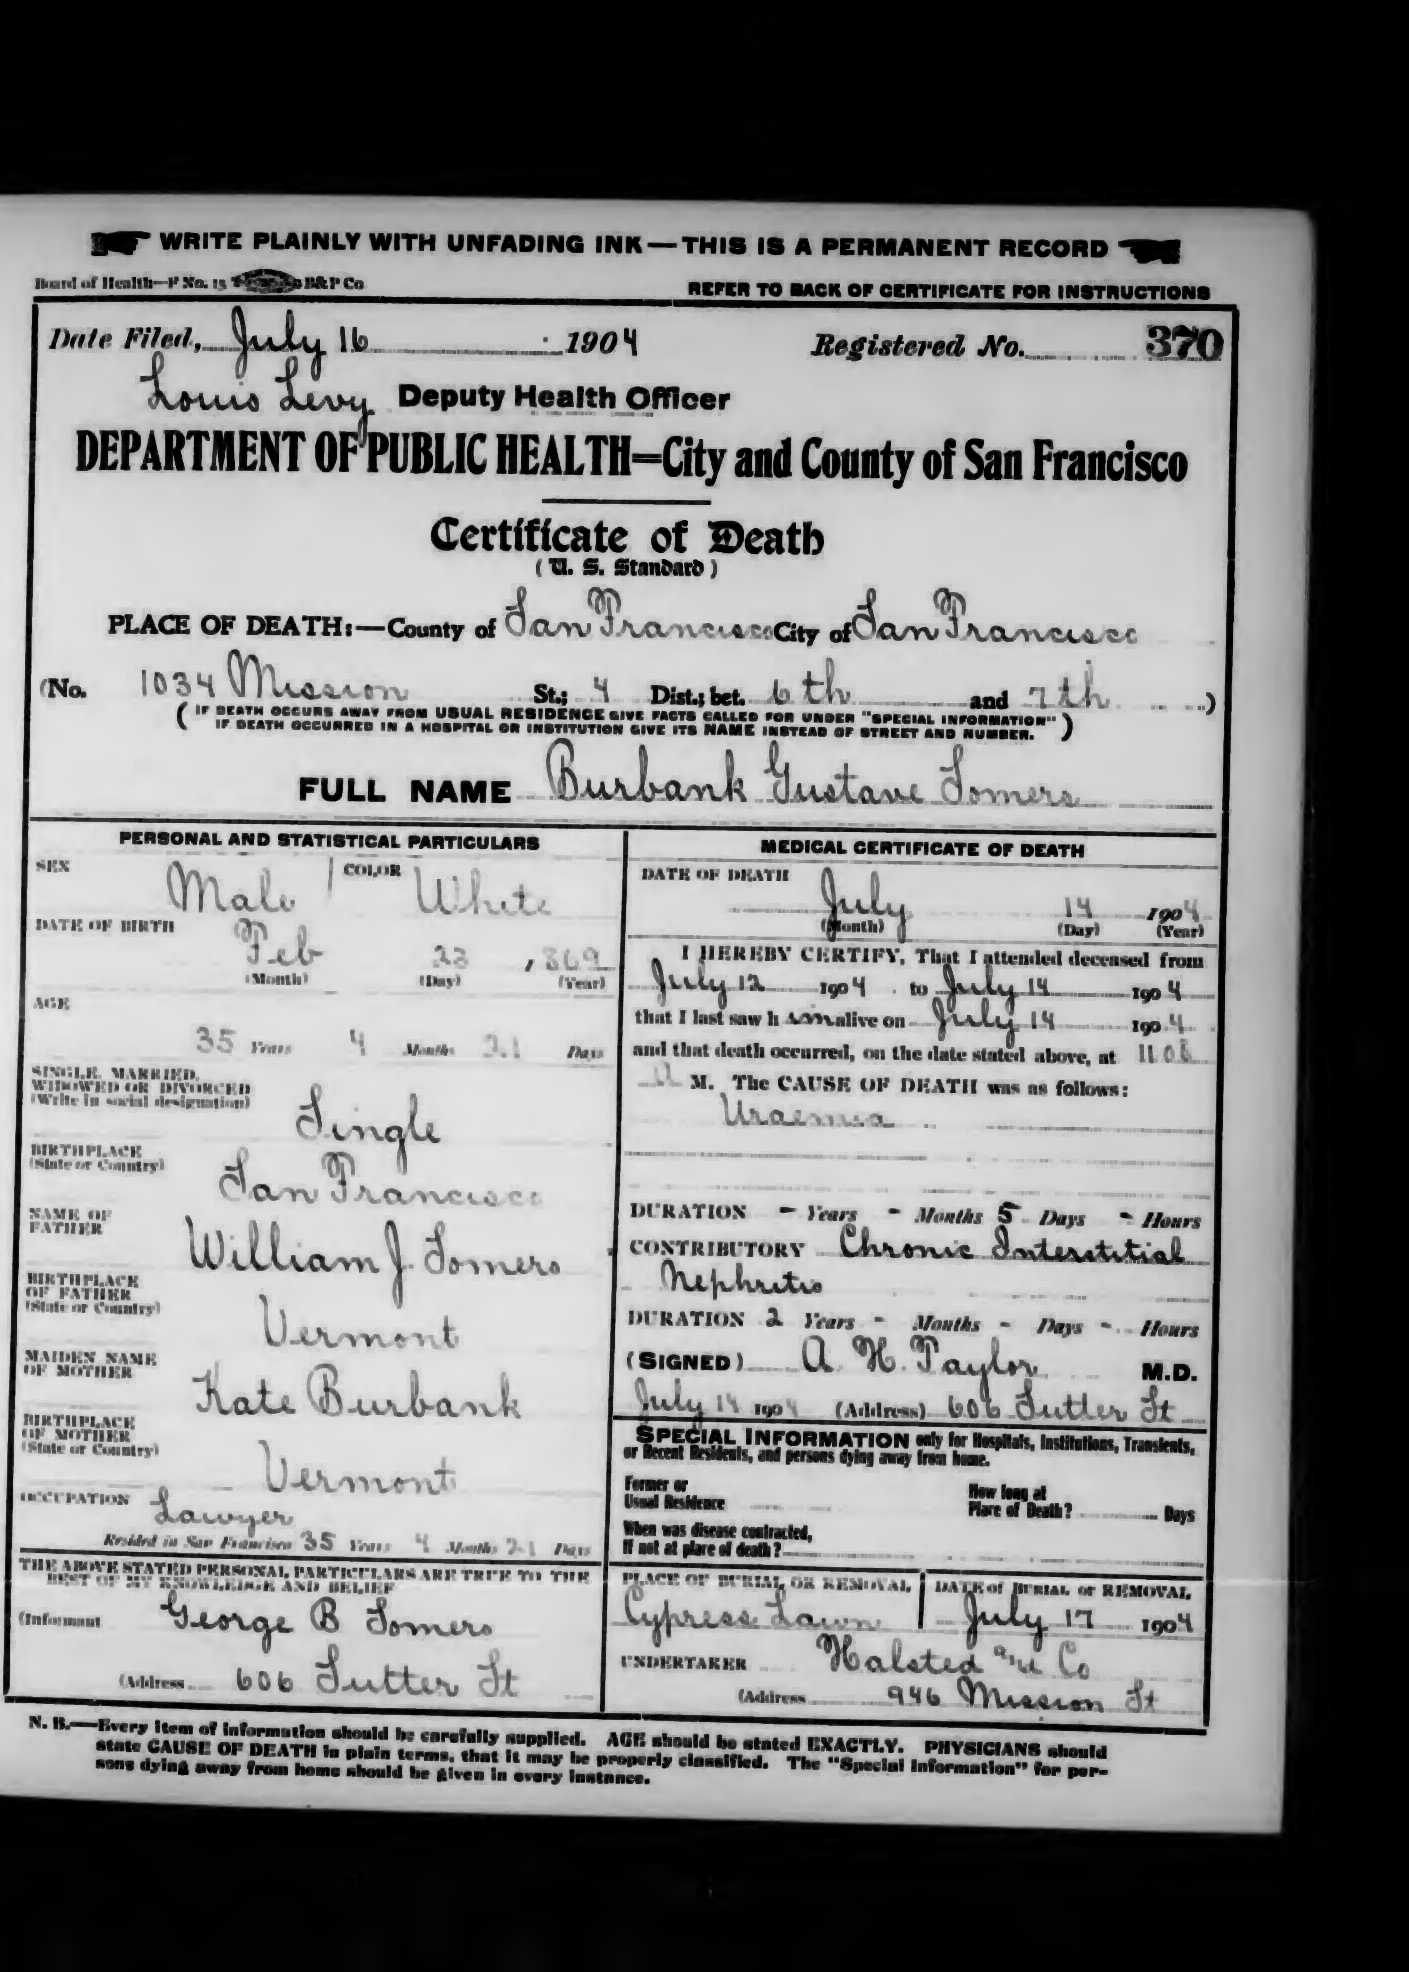 WRITE PLAINLY WITH UNFADING INK — THIS IS A PERMANENT RECORD
Board of Health—F No. 15 B&P Co
REFER TO BACK OF CERTIFICATE FOR INSTRUCTIONS
Date Filed, July 16 1904 Registered No. 370
Louis Levy Deputy Health Officer
DEPARTMENT OF PUBLIC HEALTH=City and County of San Francisco
Certificate of Death
(U. S. Standard)
PLACE OF DEATH:—County of San Francisco City of San Francisco
(No. 1034 Mission St.; 4 Dist.; bet. 6th and 7th )
( IF DEATH OCCURS AWAY FROM USUAL RESIDENCE GIVE FACTS CALLED FOR UNDER "SPECIAL INFORMATION"
IF DEATH OCCURRED IN A HOSPITAL OR INSTITUTION GIVE ITS NAME INSTEAD OF STREET AND NUMBER. )
FULL NAME Burbank Gustave Somers
PERSONAL AND STATISTICAL PARTICULARS
SEX Male COLOR White
DATE OF BIRTH Feb 23 , 869
(Month) (Day) (Year)
AGE
35 Years 4 Months 21 Days
SINGLE, MARRIED,
WIDOWED OR DIVORCED
(Write in social designation)
Single
BIRTHPLACE
(State or Country)
San Francisco
NAME OF
FATHER
William J. Somers
BIRTHPLACE
OF FATHER
(State or Country)
Vermont
MAIDEN NAME
OF MOTHER
Kate Burbank
BIRTHPLACE
OF MOTHER
(State or Country)
Vermont
OCCUPATION
Lawyer
Resided in San Francisco 35 Years 4 Months 21 Days
THE ABOVE STATED PERSONAL PARTICULARS ARE TRUE TO THE
BEST OF MY KNOWLEDGE AND BELIEF
(Informant George B Somers
(Address 606 Sutter St
MEDICAL CERTIFICATE OF DEATH
DATE OF DEATH
July 14 1904
(Month) (Day) (Year)
I HEREBY CERTIFY, That I attended deceased from
July 12 1904 to July 14 1904
that I last saw h im alive on July 14 1904
and that death occurred, on the date stated above, at
M. The CAUSE OF DEATH was as follows:
Uraemia
DURATION - Years - Months 5 Days - Hours
CONTRIBUTORY Chronic Interstitial
Nephritis
DURATION 2 Years - Months - Days - Hours
(SIGNED) A. H. Taylor M.D.
July 14 1904 (Address) 606 Sutter St
SPECIAL INFORMATION only for Hospitals, Institutions, Transients,
or Recent Residents, and persons dying away from home.
Former or
Usual Residence
How long at
Place of Death? Days
When was disease contracted,
If not at place of death?
PLACE OF BURIAL OR REMOVAL DATE of BURIAL or REMOVAL
Cypress Lawn July 17 1904
UNDERTAKER Halsted and Co
(Address 946 Mission St
N. B.—Every item of information should be carefully supplied. AGE should be stated EXACTLY. PHYSICIANS should
state CAUSE OF DEATH in plain terms, that it may be properly classified. The "Special Information" for per-
sons dying away from home should be given in every instance.